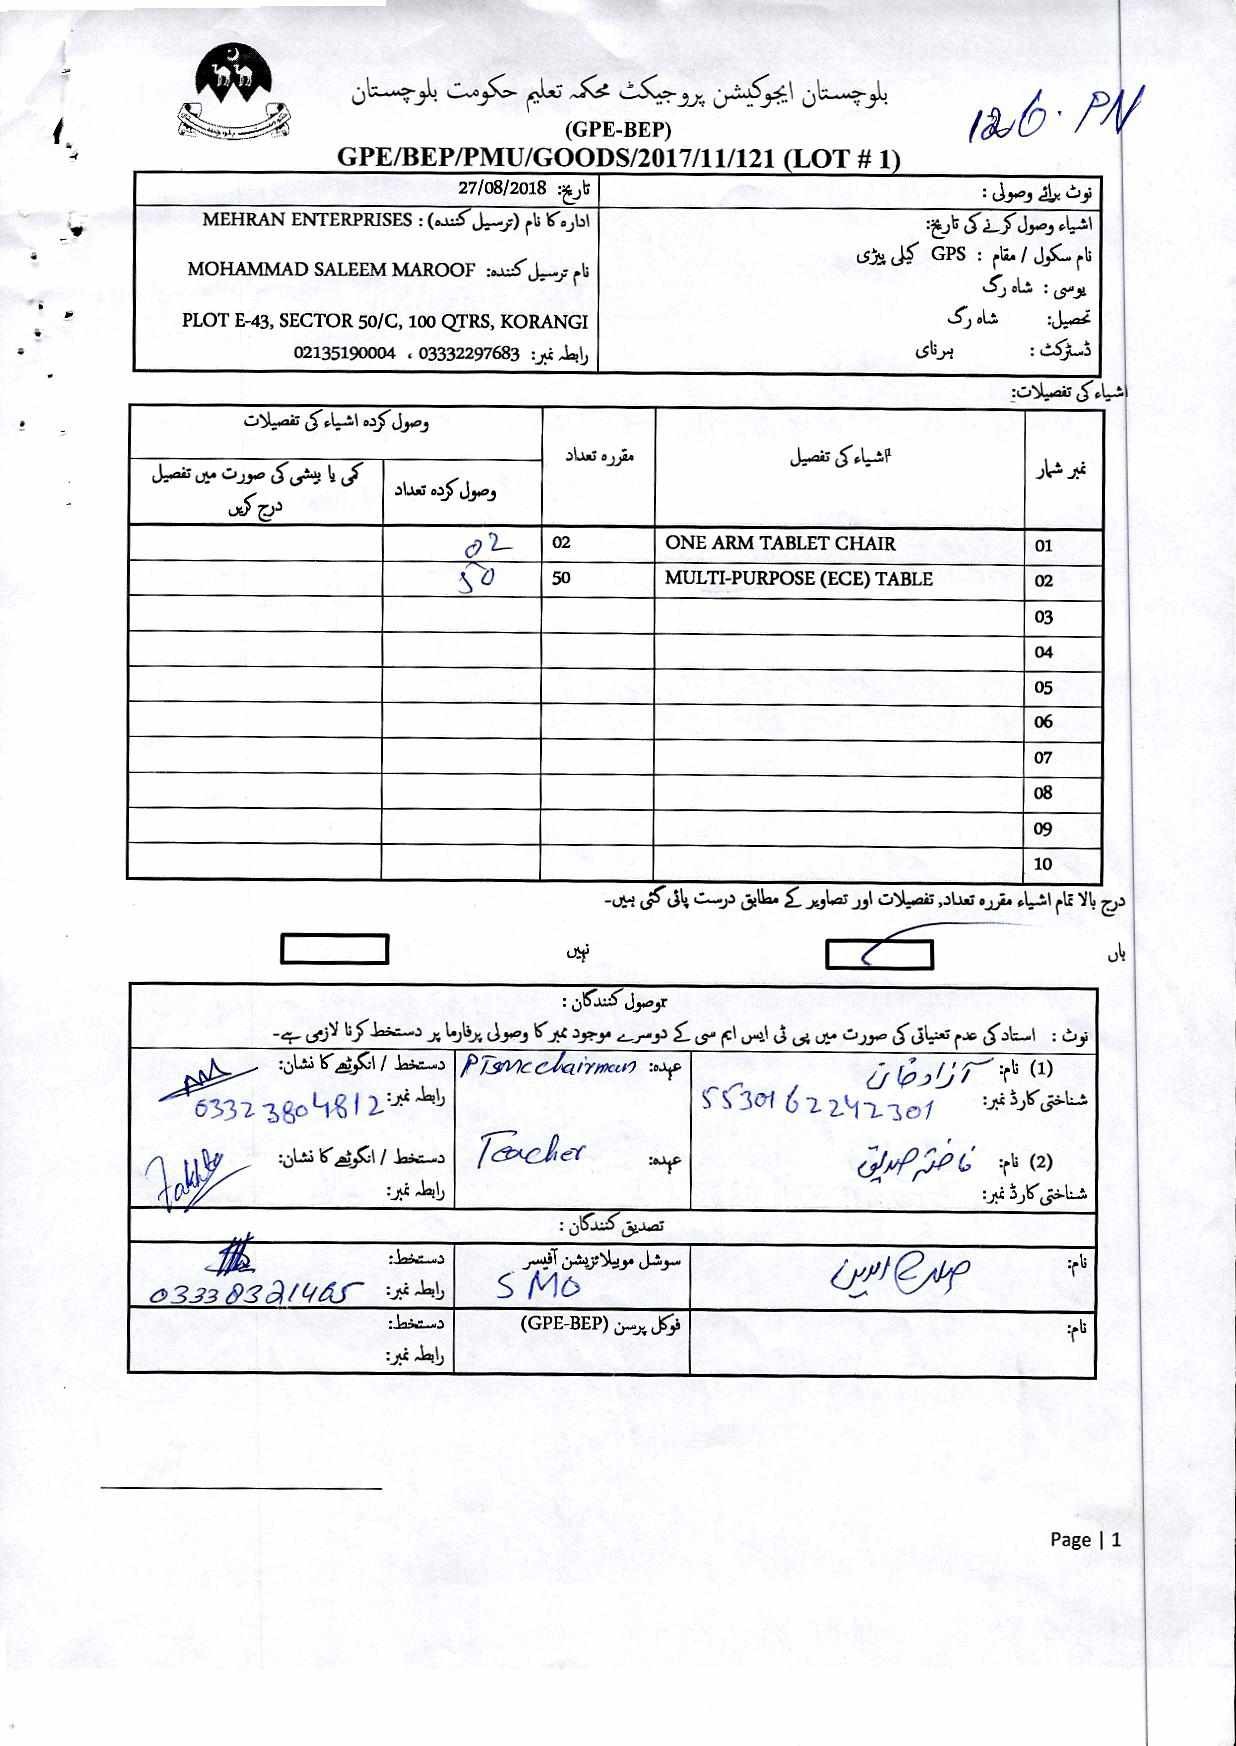 بلوچستان ایجوکیشن پروجیکٹ محکمہ تعلیم حکومت بلوچستان
126. PN
(GPE-BEP)
GPE/BEP/PMU/GOODS/2017/11/121 (LOT # 1)
نوٹ برائے وصولی :
اشیاء وصول کرنے کی تاریخ:
نام سکول / مقام : GPS کیلی پیڑی
یوسی : شاہ رگ
تحصیل: شاہ رگ
ڈسٹرکٹ : ہرنای
تاریخ: 27/08/2018
ادارہ کا نام (ترسیل کنندہ) : MEHRAN ENTERPRISES
نام ترسیل کنندہ: MOHAMMAD SALEEM MAROOF
PLOT E-43, SECTOR 50/C, 100 QTRS, KORANGI
رابطہ نمبر: 03332297683 ، 02135190004
اشیاء کی تفصیلات:
نمبر شمار اشیاء کی تفصیل مقررہ تعداد وصول کردہ اشیاء کی تفصیلات
وصول کردہ تعداد کمی یا بیشی کی صورت میں تفصیل درج کریں
01 ONE ARM TABLET CHAIR 02 02
02 MULTI-PURPOSE (ECE) TABLE 50 50
03
04
05
06
07
08
09
10
درج بالا تمام اشیاء مقررہ تعداد, تفصیلات اور تصاویر کے مطابق درست پائی گئی ہیں۔
ہاں نہیں
وصول کنندگان :
نوٹ : استاد کی عدم تعیناتی کی صورت میں پی ٹی ایس ایم سی کے دوسرے موجود ممبر کا وصولی پرفارما پر دستخط کرنا لازمی ہے۔
(1) نام: آزاد خان عہدہ: PTSMC chairman دستخط / انگوٹھے کا نشان:
شناختی کارڈ نمبر: 5530162242301 رابطہ نمبر: 03323804812
(2) نام: فاختہ صدیق عہدہ: Teacher دستخط / انگوٹھے کا نشان:
شناختی کارڈ نمبر: رابطہ نمبر:
تصدیق کنندگان :
نام: سوشل موبیلائزیشن آفیسر دستخط:
SMO رابطہ نمبر: 03338321465
نام: فوکل پرسن (GPE-BEP) دستخط:
رابطہ نمبر:
Page | 1